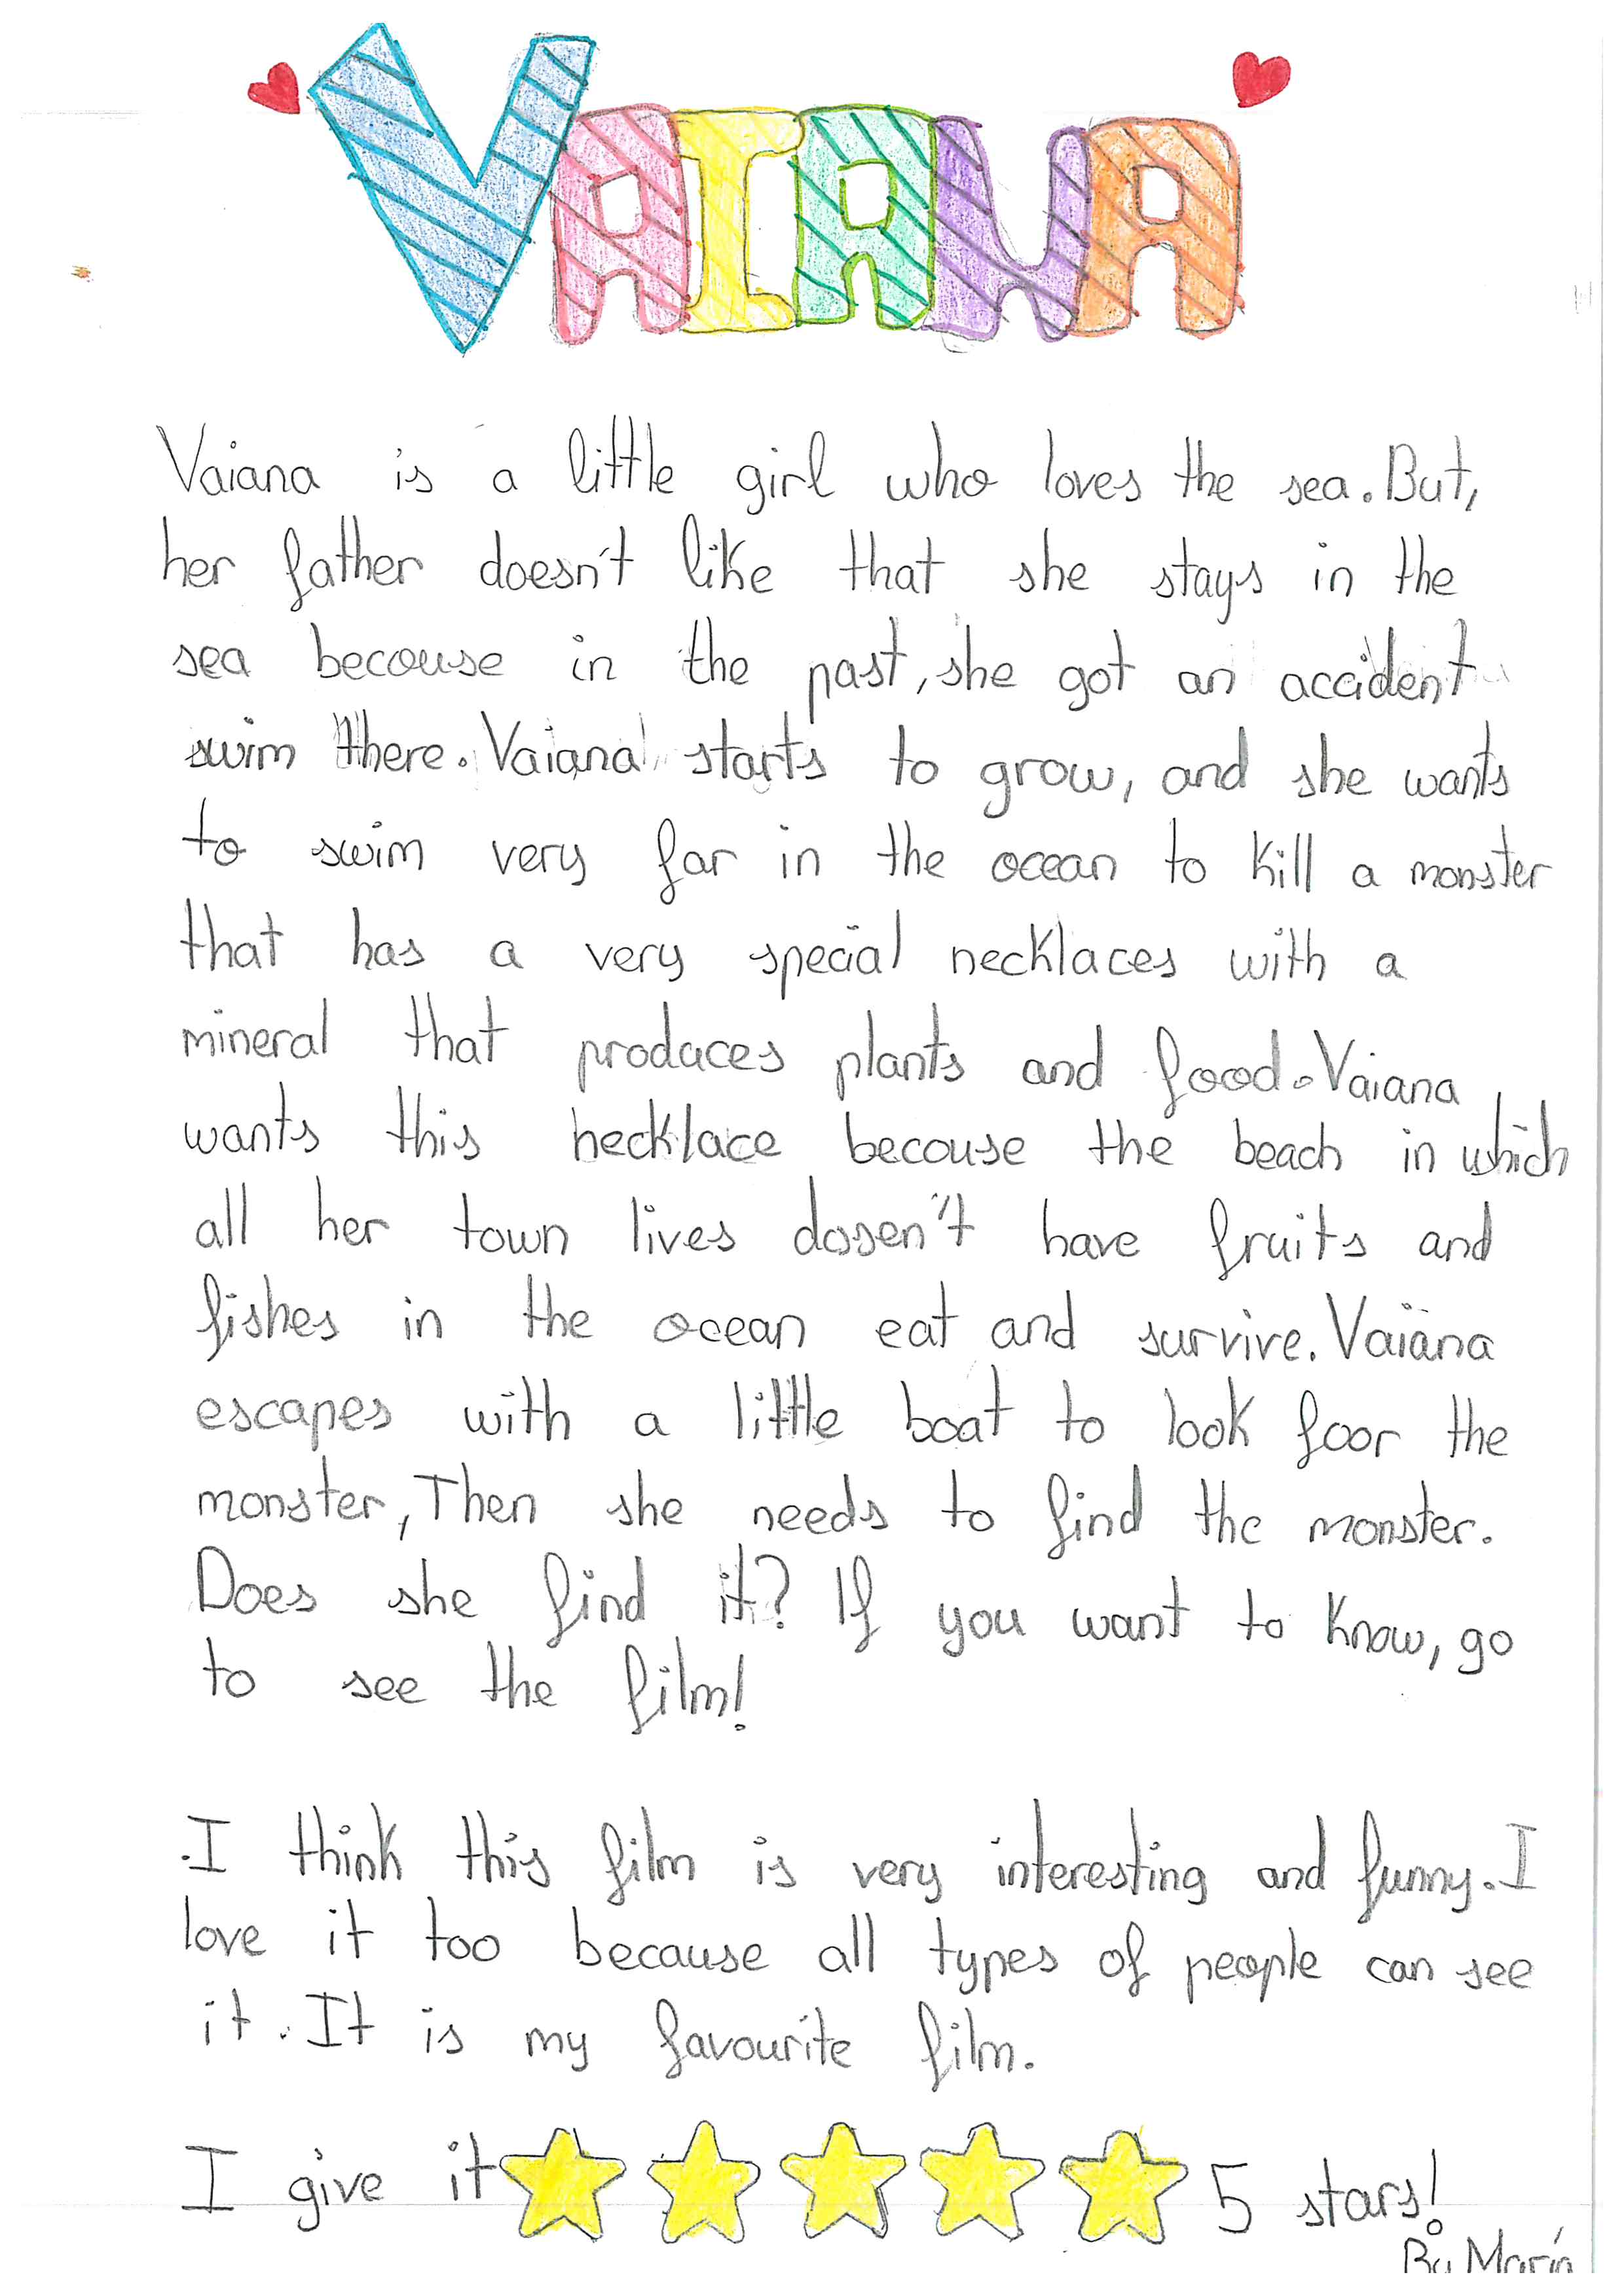 VAIANA
Vaiana is a little girl who loves the sea. But,
her father doesn't like that she stays in the
sea becouse in the past, she got an accident
swim there. Vaiana starts to grow, and she wants
to swim very far in the ocean to kill a monster
that has a very special necklaces with a
mineral that produces plants and food. Vaiana
wants this necklace becouse the beach in which
all her town lives dosen't have fruits and
fishes in the ocean eat and survive. Vaiana
escapes with a little boat to look foor the
monster, Then she needs to find the monster.
Does she find it? If you want to know, go
to see the film!
.I think this film is very interesting and funny. I
love it too because all types of people can see
it. It is my favourite film.
I give it 5 stars!
By María